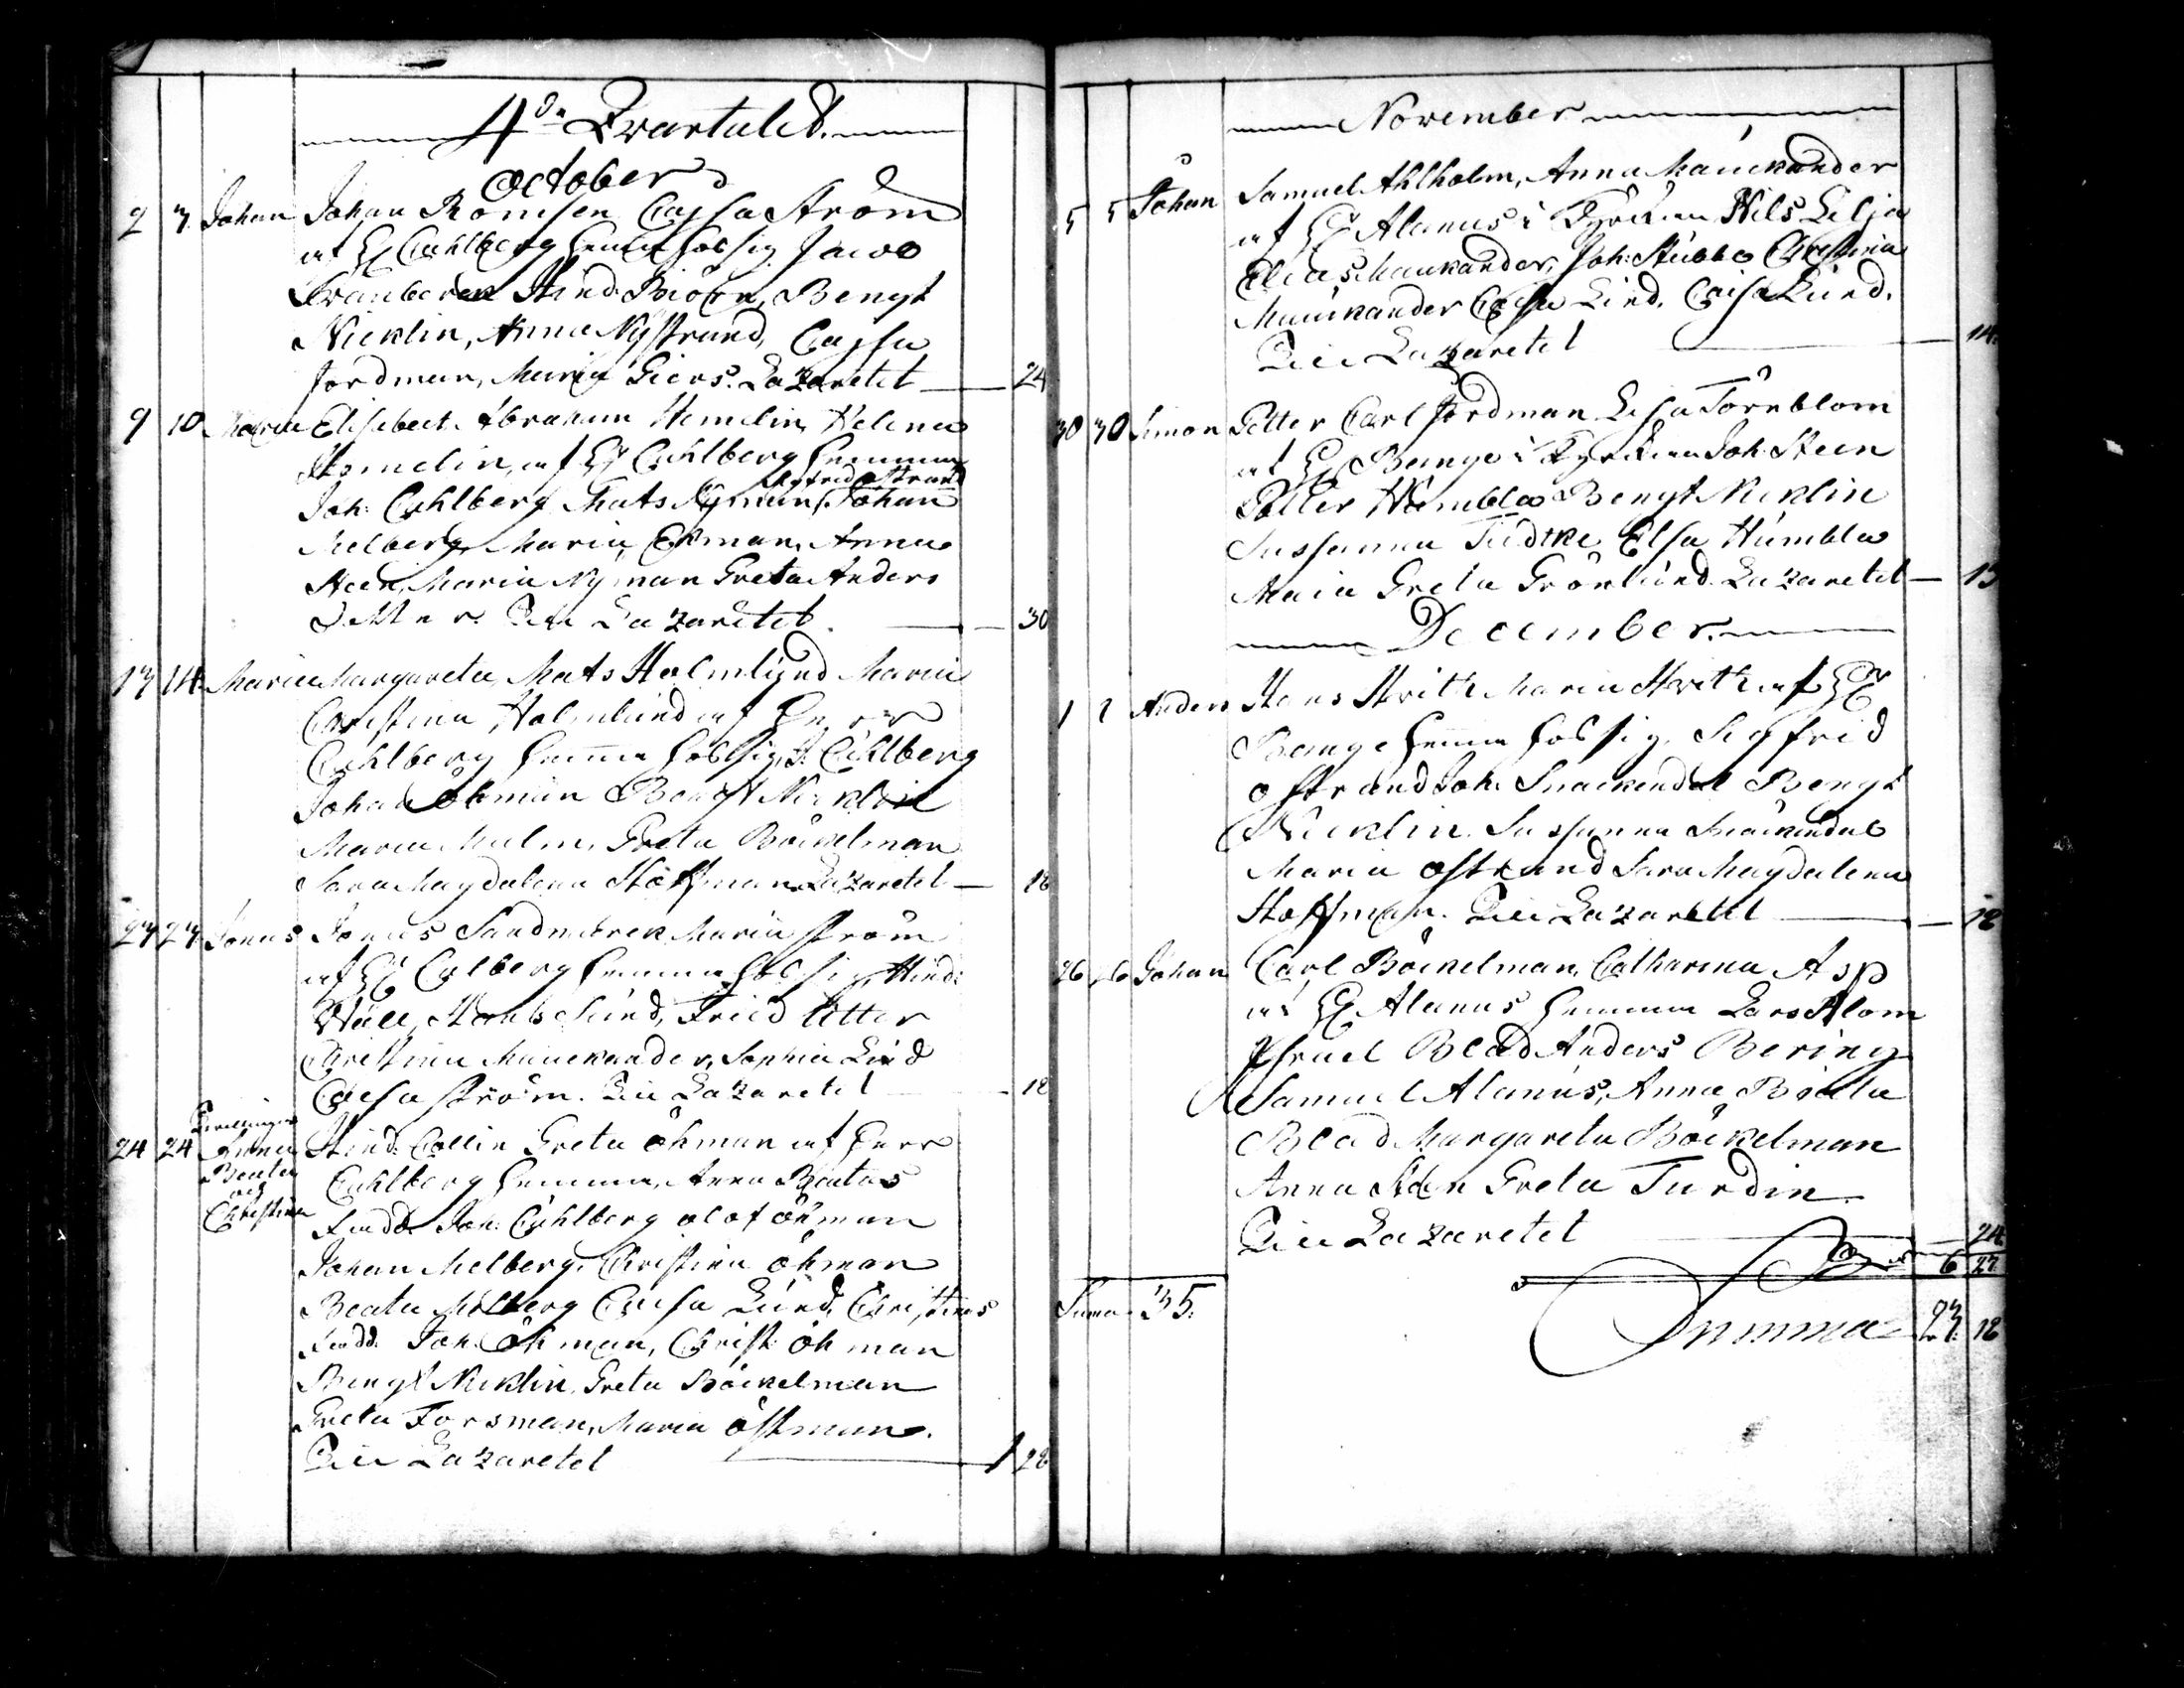 4de Qvartalet.
October
2 3 Johan Johan Römsen Cajsa Ström
af H: Cahlberg hemma hos sig Jacob
Tranberg Hind: Biörn, Bengt
Nicklin, Anna Nystrand, Cajsa
Jordman, Maria Giers. Lazaretet — 24
9 10 Maria Elisabeet. Abraham Hemelin Helena
Hemelin, af H: Cahlberg hemma
Sigfrid Östrand
Joh: Cahlberg Mats Nyman, Johan
Melberg, Maria Ekman, Anna
Steen, Maria Nyman Greta Anders
Dotter. Lazaretet — 30
13 14 Maria Margareta, Mats Holmlund Maria
Christina Holmlund af Herr
Cahlberg hemma hos sig, J: Cahlberg
Johan Öhman Bengt Nicklin
Maria Malm, Greta Böckelman
Sara Magdalena Hoffman Lazaretet — 18
23 23 Jonas Jonas Sandmarck Maria Ström
af H: Calberg hemma hos sig, Hind:
Wall, Hans Lund, Fried Utter
Christina Munckander, Sophia Lind
Caisa Ström. Lazaretet — 18
Tvillingar
24 24 Anna Hind: Collin Greta Öhman af Herr
Beata
och
Christina
Cahlberg hemma, Anna Beatas
Fadd. Joh: Cahlberg Olof Öhman
Johan Melberg, Christina Öhman
Beata Melberg Caisa Lund, Christinas
Fadd. Joh: Öhman, Christ: Öhman
Bengt Nicklin, Greta Böckelman
Greta Forsman, Maria Östman.
Lazaretet — 1 28
November
5 5 Johan Samuel Ahlholm, Anna Munckander
af H: Alanus i Kyrckan Nils Lilja
Elias Munkander, Joh: Stubbe Christina
Munckander Caisa Lind, Caisa Lund.
Lazaretet — 14
30 30 Simon Petter Carl Jordman Lisa Törnblom
af H: Bange i Kyrckan Joh: Steen
Petter Humbla Bengt Nicklin
Sussanna Tudtke Elsa Humbla
Maia Greta Grönlund Lazaretet — 13
December.
1 1 Anders Hans Hvith Maria Hvith af H:
Bange hemma hos sig, Sigfrid
Östrand Joh: Snackendal Bengt
Nicklin, Sussanna Snackendal
Maria Östrand Sara Magdalena
Hoffman. Lazaretet — 18
26 26 Johan Carl Böckelman, Catharina Asp
af H: Alanus hemma Lars Blom
Israel Blad Anders Bering
Samuel Alanus, Anna Beata
Blad Margareta Böckelman
Anna Steen Greta Turdin
Lazaretet — 24
6 27
Summa 35.
Summa 23 18